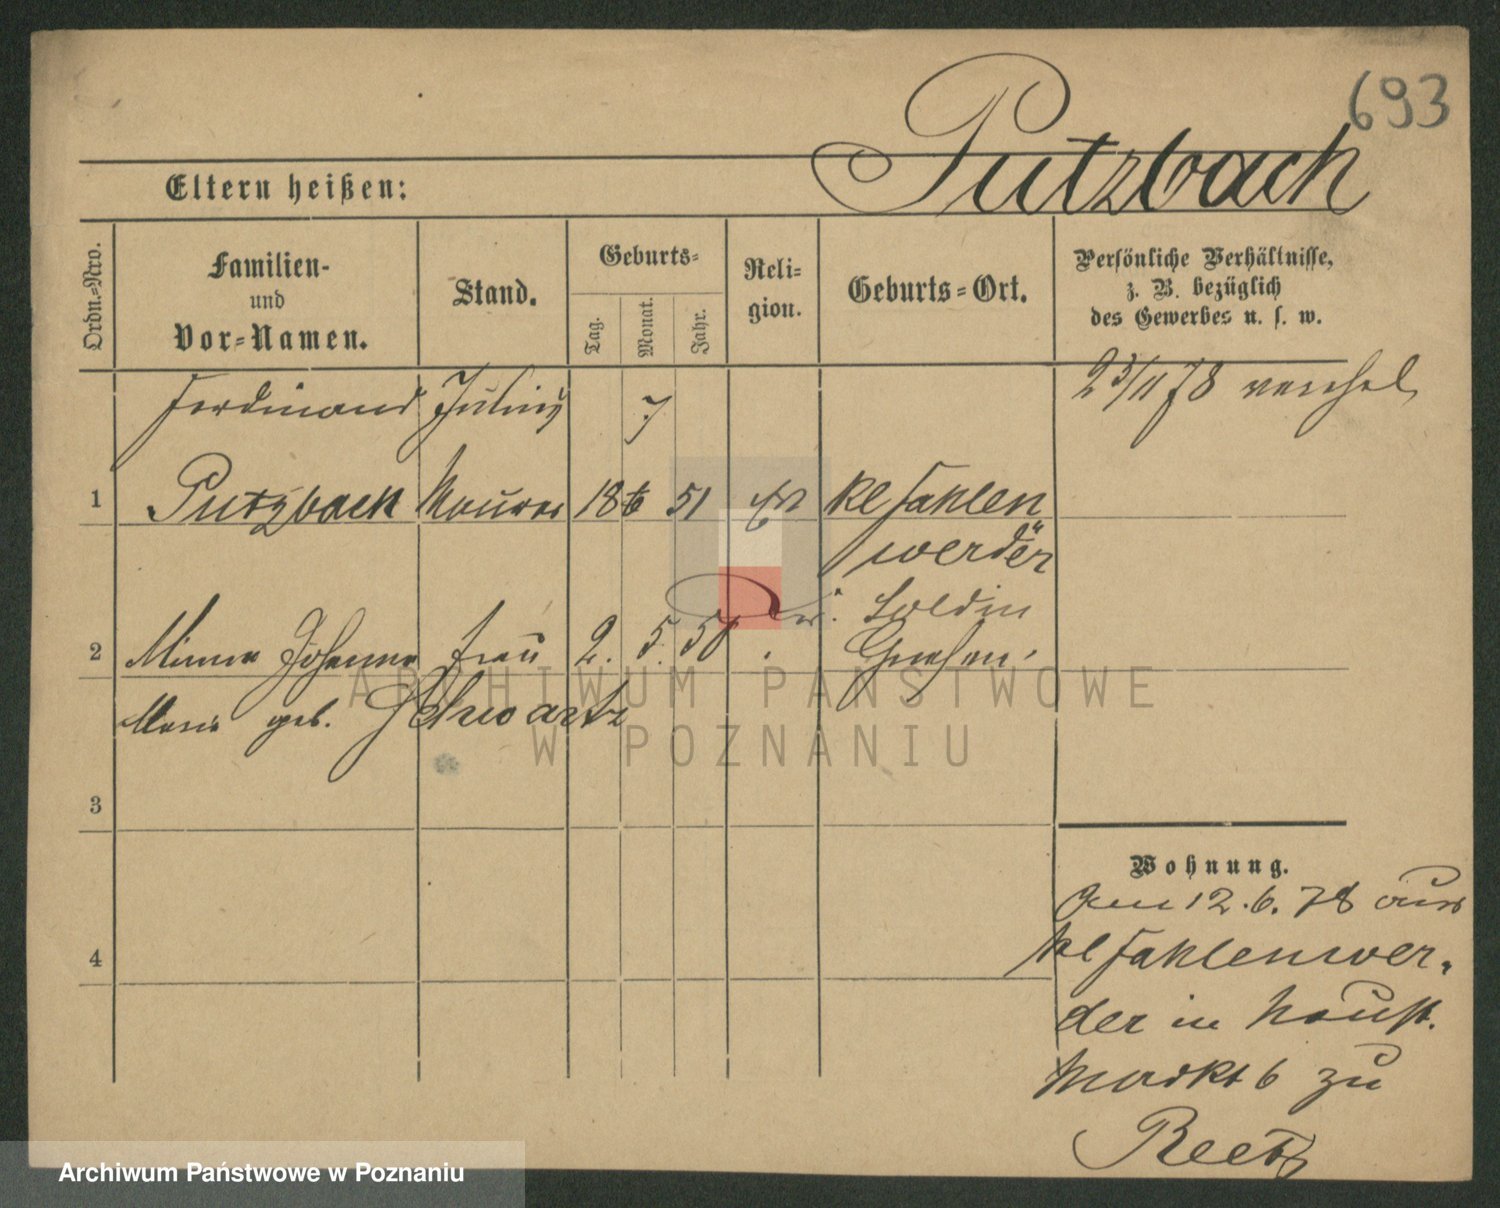 693
Putzbach
Eltern heißen:
Ordn.-Nro.
Familien-
und
Vor-Namen.
Stand.
Geburts-
Tag.
Monat.
Jahr.
Reli-
gion.
Geburts-Ort.
Persönliche Verhältnisse,
z. B. bezüglich
des Gewerbes u. s. w.
Ferdinand Julius 7 23/11 78
1 Putzback Maurer 18 6 51 Ev kl Fahlen
werder
Soldin
2 Minna Johanna Frau 2. 5. 50
Marie geb. Schwartz
ARCHIWUM PAŃSTWOWE
W POZNANIU
3
4
Wohnung.
Am 12.6.78 aus
kl Fahlenwer-
der in Neust.
Markt 6 zu
Reetz
Archiwum Państwowe w Poznaniu